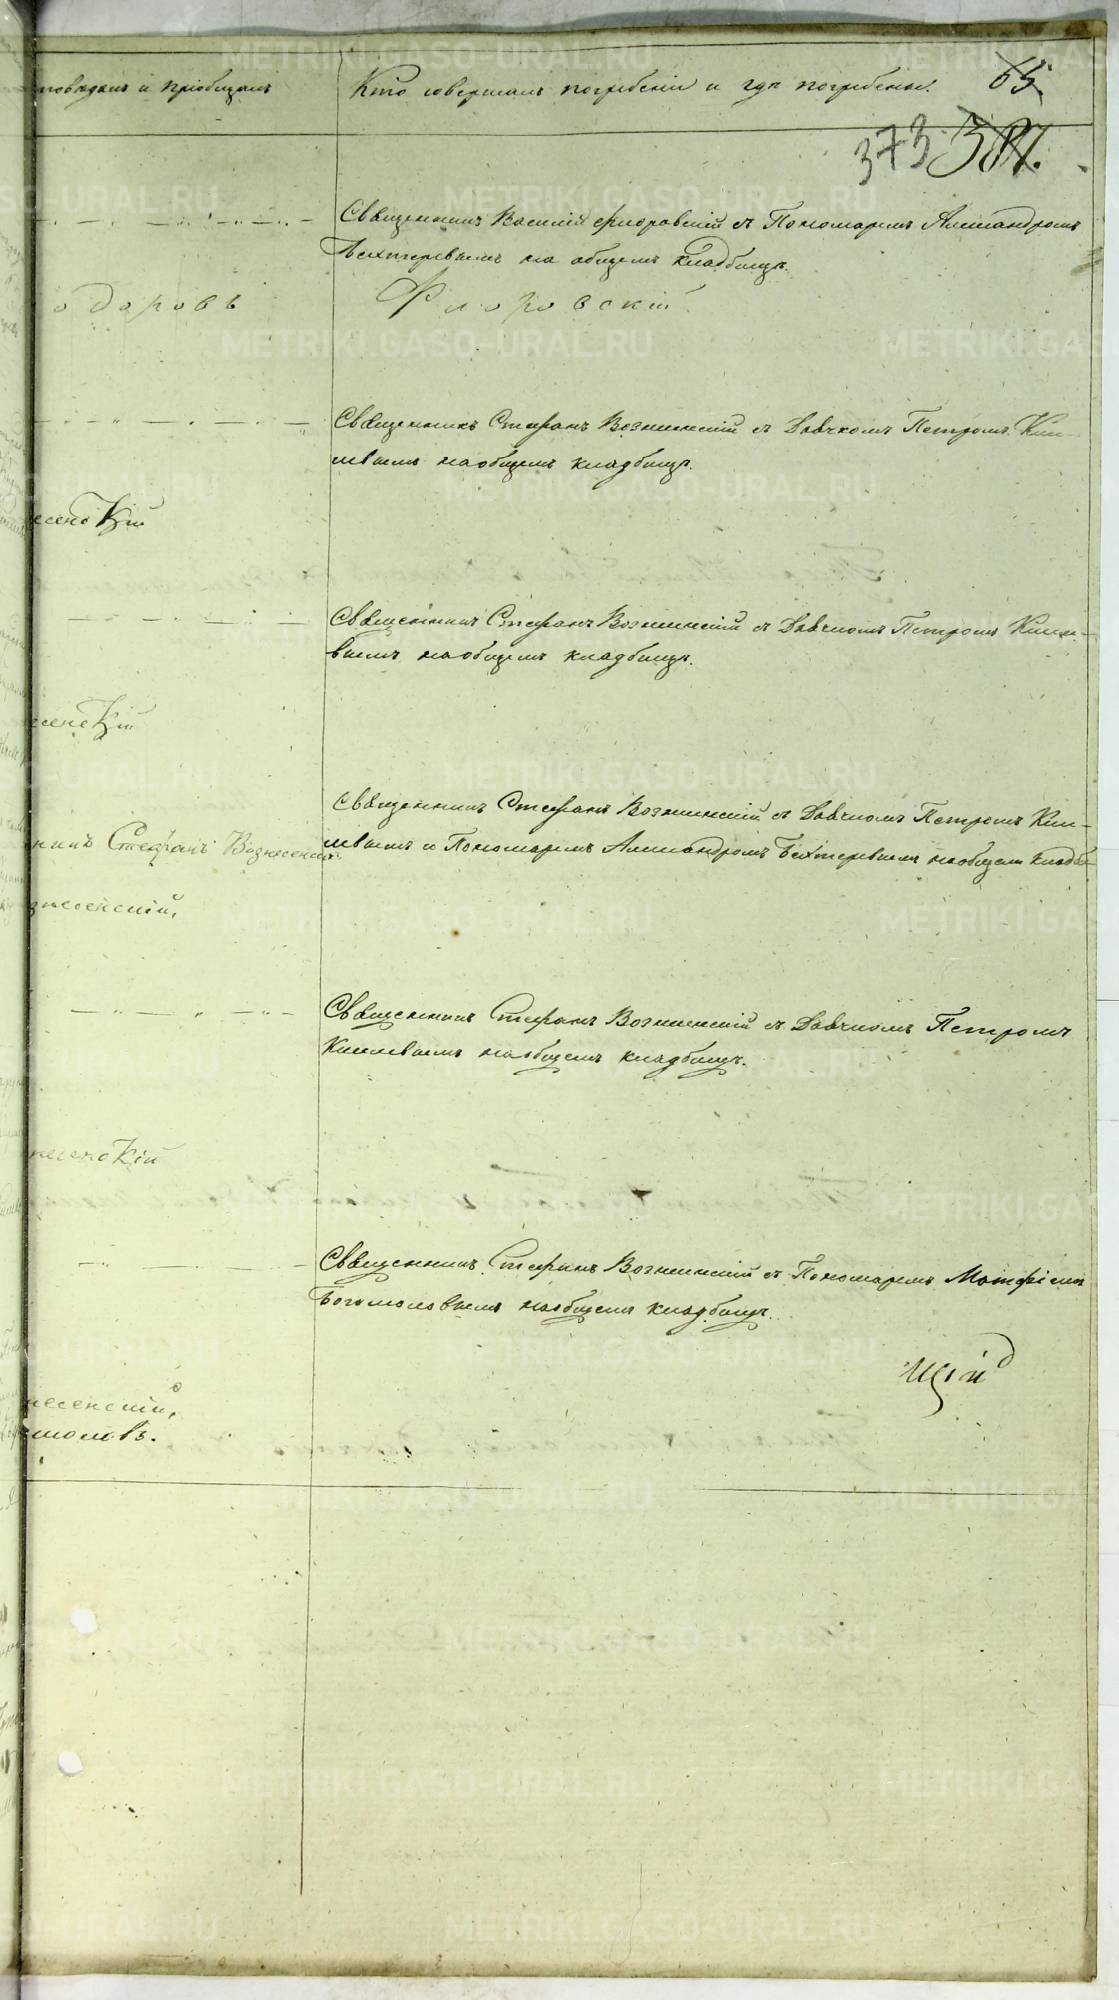 METRIKI.GASO-URAL.RU
и пріобщалъ
Кто совершалъ погребеніе и гдѣ погребены.
65.
373 387.
Священникъ Василій Флоровскій съ Пономаремъ Александромъ
Бехтеревымъ на общемъ кладбищѣ.
одоровъ
Флоровскій
Священникъ Стефанъ Вознесенскій съ Дьячкомъ Петромъ Кисе-
левымъ на общемъ кладбищѣ.
сенскій
Священникъ Стефанъ Вознесенскій съ Дьячкомъ Петромъ Кисле-
вымъ на общемъ кладбищѣ.
сенскій
Священникъ Стефанъ Вознесенскій съ Дьячкомъ Петромъ Кис-
никъ Стефанъ Вознесенскій
левымъ и Пономаремъ Александромъ Бехтеревымъ на общем кладби
знесенскій,
Священникъ Стефанъ Вознесенскій съ Дьячкомъ Петромъ
на общемъ кладбищѣ.
несенскій
Священникъ Стефанъ Вознесенскій съ Пономаремъ Матфіемъ
Богомоловымъ на общемъ кладбищѣ.
щій
несенскій,
моловъ.